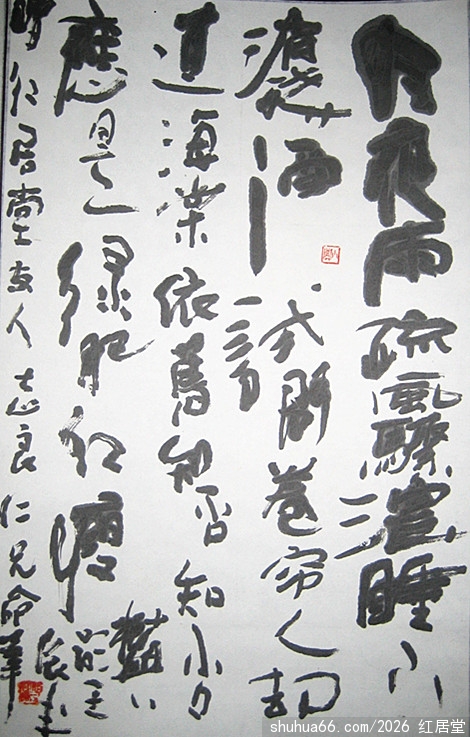 昨夜雨疏風驟濃睡不
消残酒 試問卷帘人却
道海棠依舊知否知否
應是绿肥红瘦
仁居堂友人志良仁兄命筆
shuhua66.com/2026 红居堂